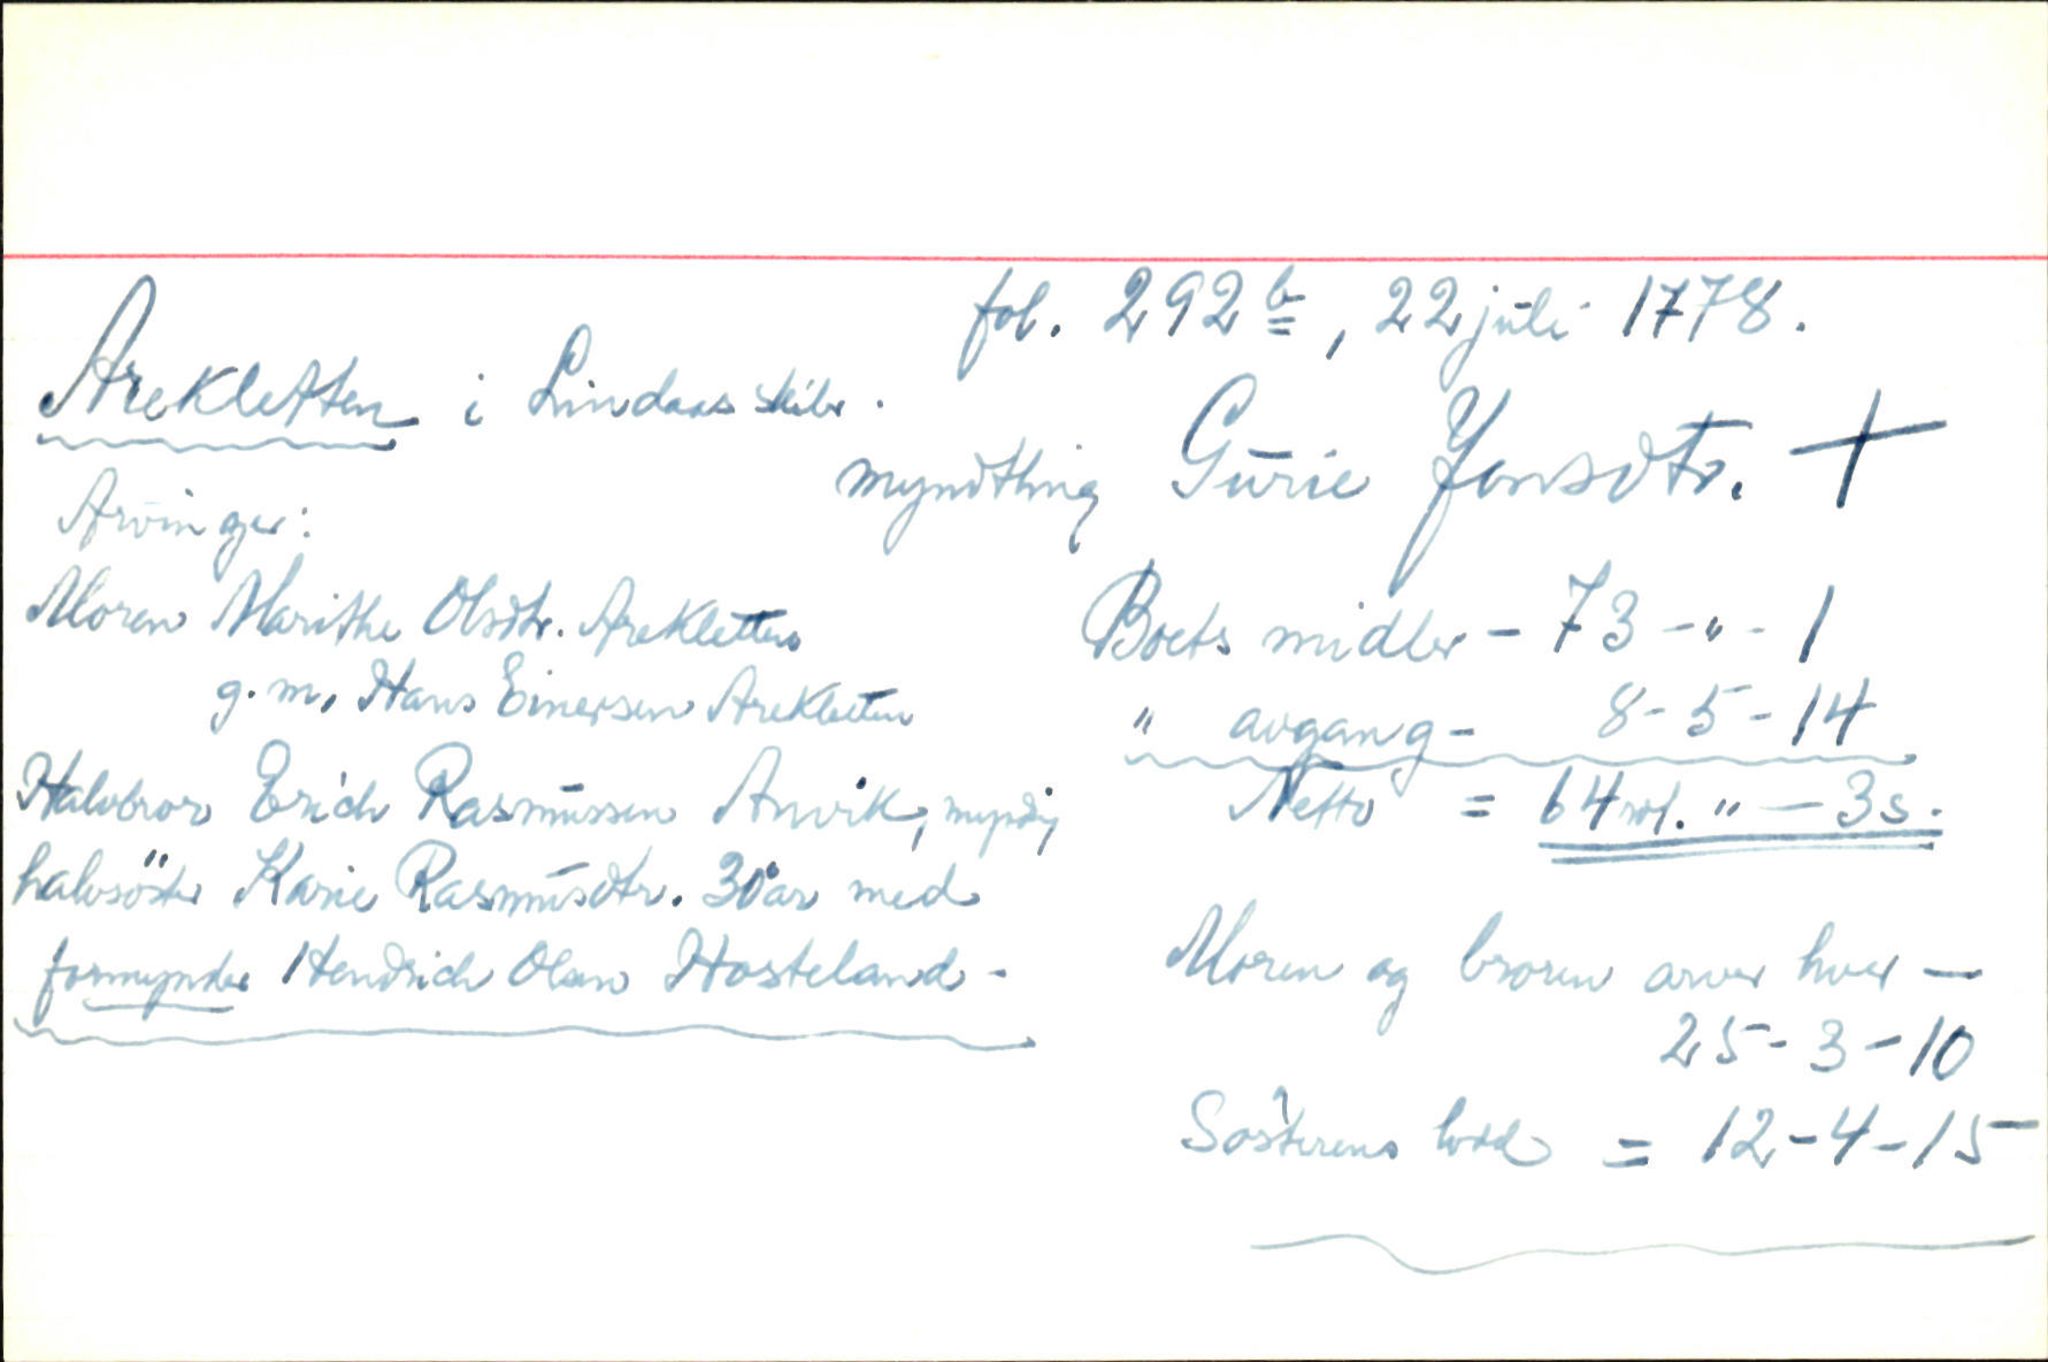 fol. 292 b, 22 juli 1778.
Arekletten i Lindaas skibr.
myndtling Gurie Jonsdtr. +
Arvinger:
Moren Marithe Olsdtr. Arekletten
g. m. Hans Einersen Arekletten
Halvbror Erich Rasmussen Anvik, myndig
halvsöster Karie Rasmusdtr. 30 år med
formynder Hendrich Olsen Hosteland -
Boets midler - 73 - " - 1
" avgang - 8 - 5 - 14
Netto = 64 rd. " — 3 s.
Moren og broren arver hver —
25 - 3 - 10
Søsterens lodd = 12 - 4 - 15